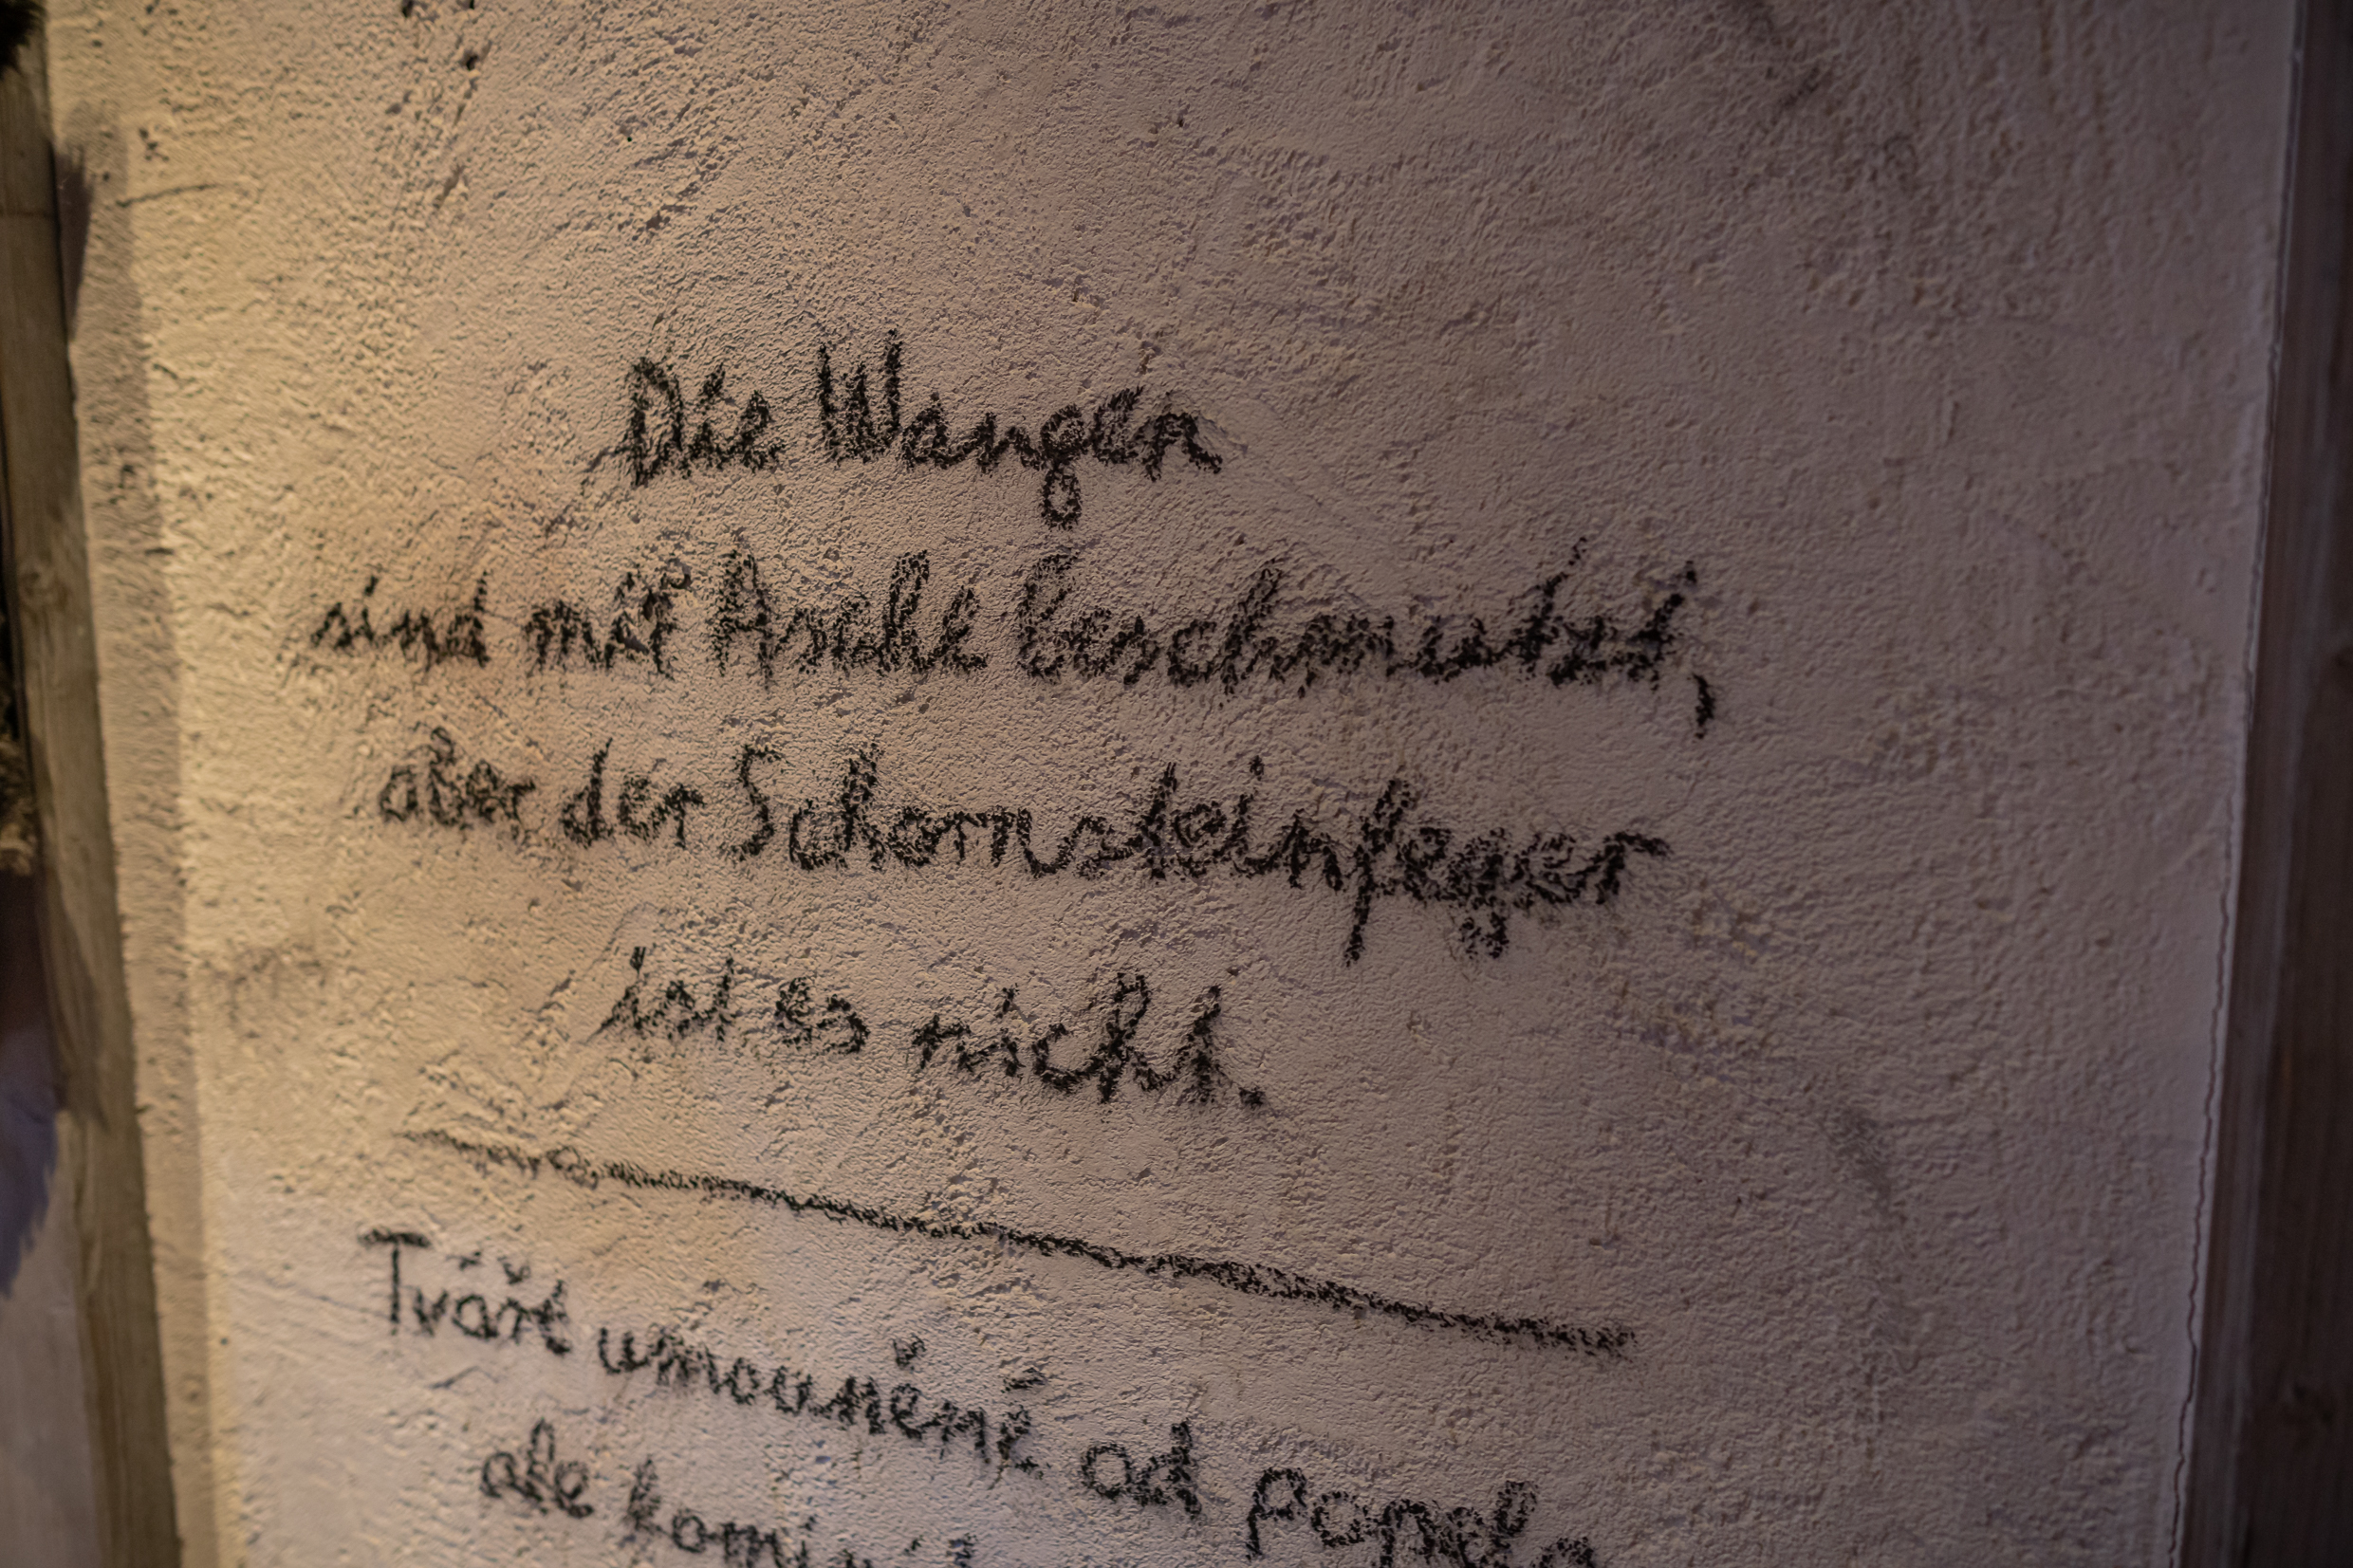 Die Wangen
sind mit Asche beschmutzt,
aber der Schornsteinfeger
ist es nicht.
Tvářt umouněné od popela
ale